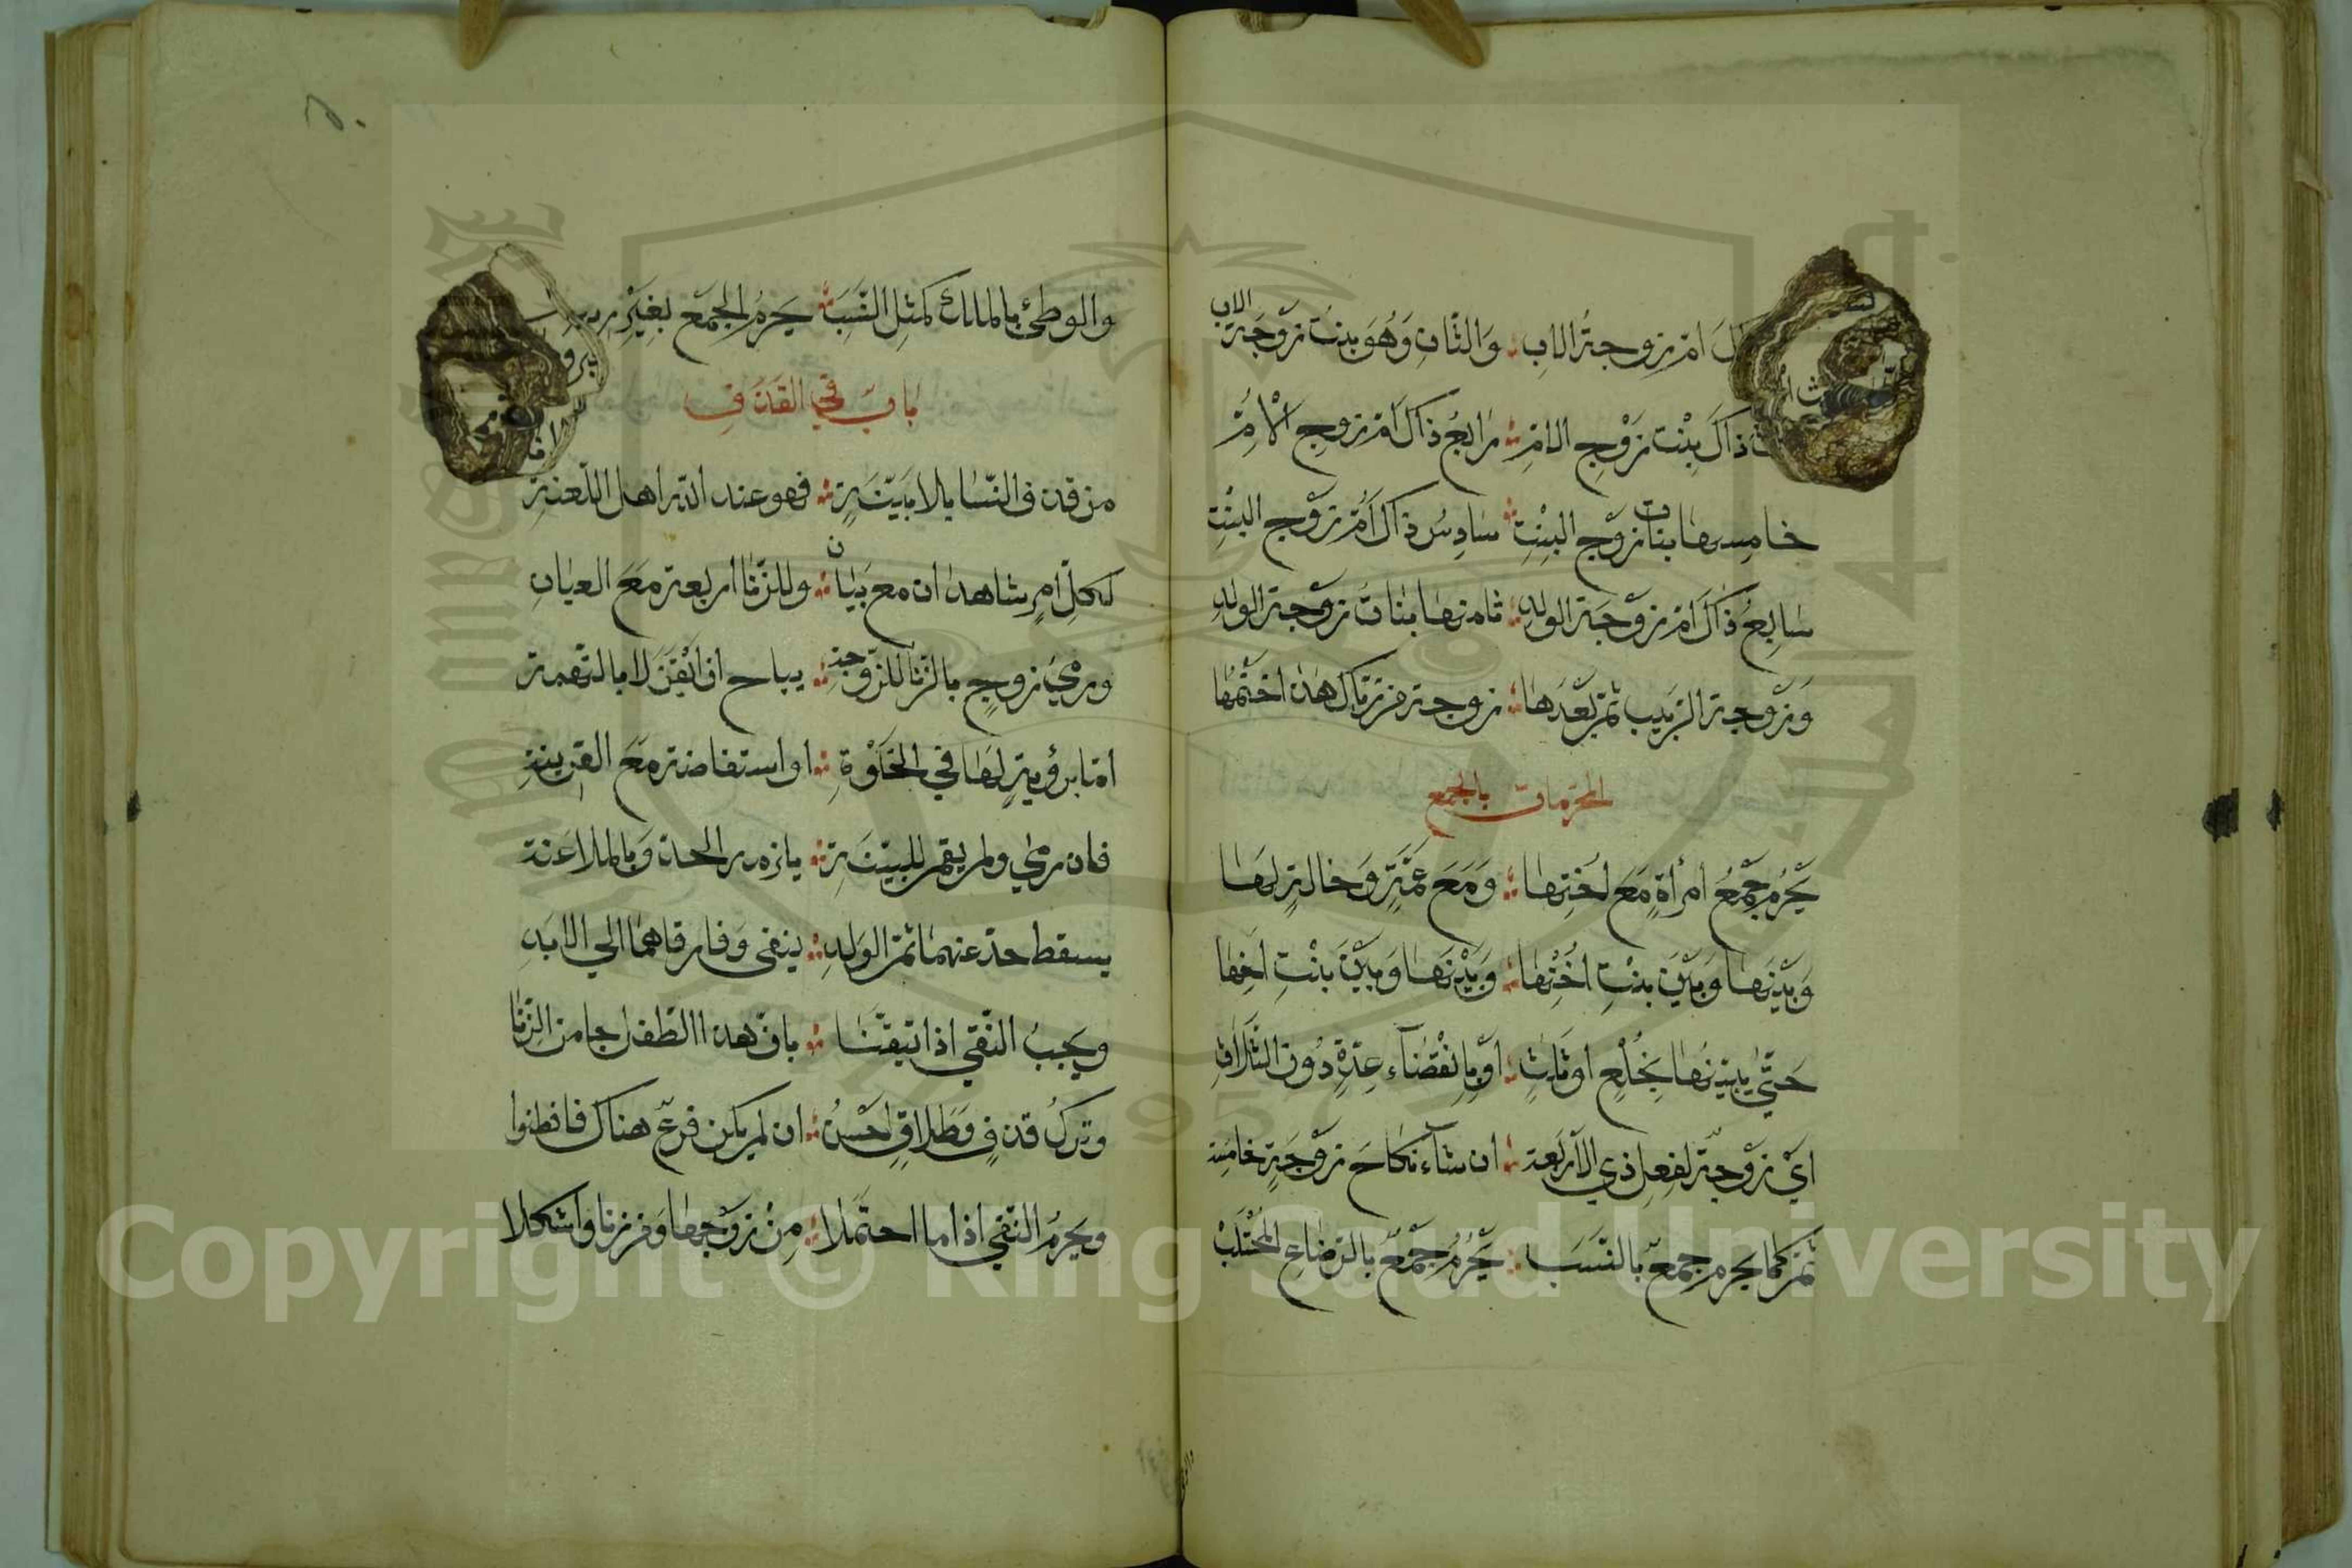 ام زوجة الاب والثان وهو بنت زوجة الاب
ذاك بنت زوج الام رابع ذاك ام زوج الام
خامسها بنات زوج البنت سادس ذاك ام زوج البنت
سابع ذاك ام زوجة الولد ثامنها بنات زوجة الولد
وزوجة الربيب ثم بعدها زوجة من رباك هذا اختمها
المحرمات بالجمع
يحرم جمع امرأة مع اختها ومع عمة وخالة لها
وبينها وبين بنت اختها وبينها وبين بنت اخها
حتى يبينها بخلع او ثلث او بانقضاء عدة دون الثلاث
اي زوجة لفعل ذي الاربعة ان شاء نكاح زوجة خامسة
ثم كما يحرم جمع بالنسب يحرم جمع بالرضاع المجتلب
والوطئ بالملك كمثل النسب يحرم الجمع بغير
باب في القذف
من قذف النسا بلا بينة فهو عند الله اهل اللعنة
لكل ام شاهدان مع بيان وللزنا اربعة مع العيان
ورمي زوج بالزنا للزوجة يباح ان ايقن لا بالتهمة
اما برؤية لها في الخلوة او استفاضة مع القرينة
فان رمى ولم يقم للبينة يلزمه الحد وبالملاعنة
يسقط حد عنهما ثم الولد ينفى وفارقاهما الى الابد
ويجب النفي اذا تيقنا بان هذا الطفل جا من الزنا
وترك قذف وطلاق احسن ان لم يكن فرع هناك فافطنوا
ويحرم النفي اذا ما احتملا من زوجها ومن زنا واشكلا
Copyright © King Saud University